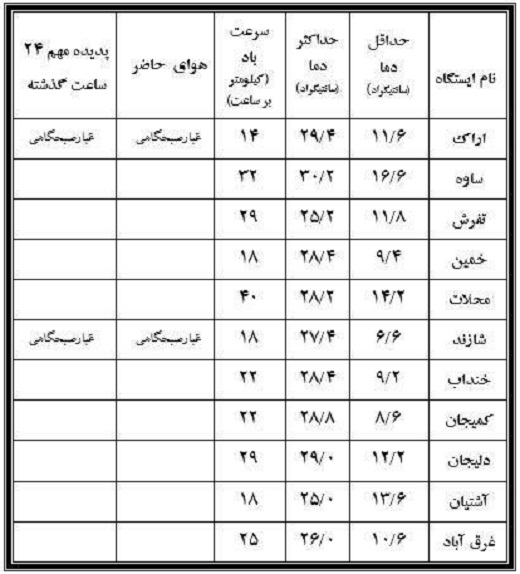 نام ایستگاه | حداقل دما (سانتیگراد) | حداکثر دما (سانتیگراد) | سرعت باد (کیلومتر بر ساعت) | هوای حاضر | پدیده مهم ۲۴ ساعت گذشته
اراک | ۱۱/۶ | ۲۹/۴ | ۱۴ | غبارصبحگاهی | غبارصبحگاهی
ساوه | ۱۶/۶ | ۳۰/۲ | ۳۲
تفرش | ۱۱/۸ | ۲۵/۲ | ۲۹
خمین | ۹/۴ | ۲۸/۴ | ۱۸
محلات | ۱۴/۲ | ۲۸/۲ | ۴۰
شازند | ۶/۶ | ۲۷/۴ | ۱۸ | غبارصبحگاهی | غبارصبحگاهی
خنداب | ۹/۲ | ۲۸/۴ | ۲۲
کمیجان | ۸/۶ | ۲۸/۸ | ۲۲
دلیجان | ۱۲/۲ | ۲۹/۰ | ۲۹
آشتیان | ۱۳/۶ | ۲۵/۰ | ۱۸
غرق آباد | ۱۰/۶ | ۲۶/۰ | ۲۵